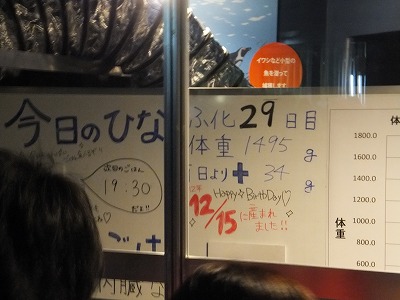 イワシなど小型の
魚を使って
今日のひな
ふ化29日目
体重 1495g
日より + 34g
次回のごはん
19:30
だよ!!
Happy BirthDay♡
12/15に産まれ
ました!!
ごは
内臓な
体重
1800.0
1600.0
1400.0
1200.0
1000.0
800.0
600.0